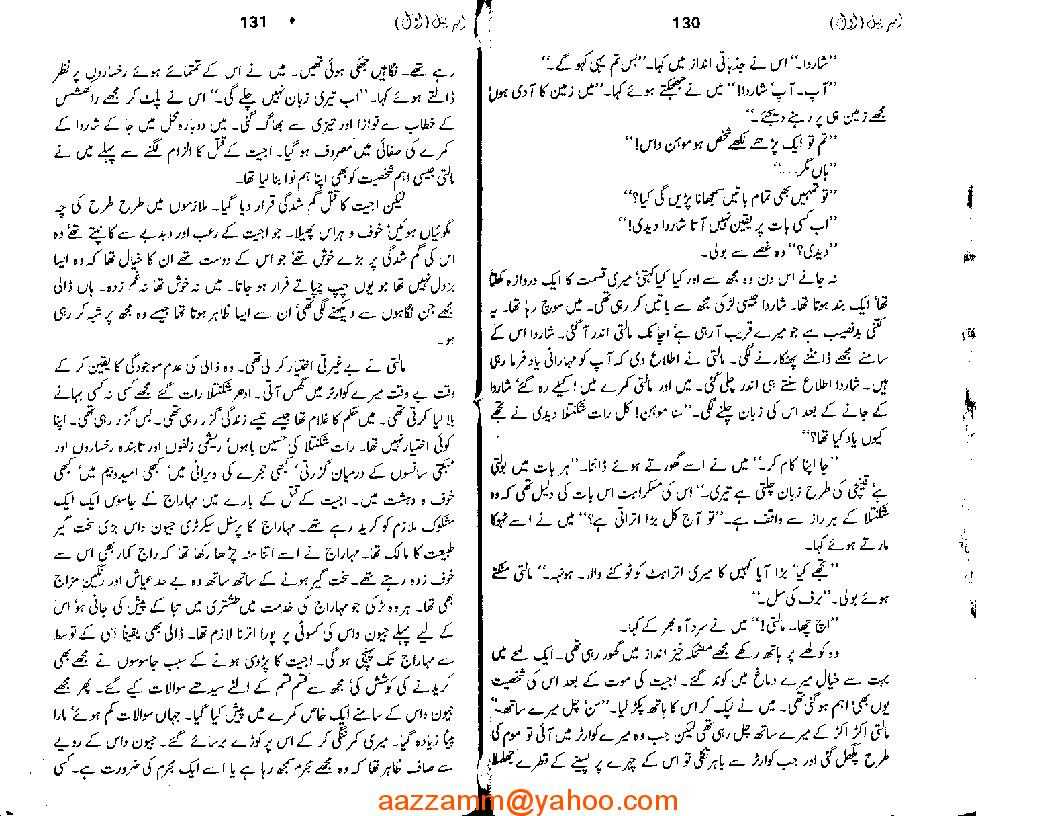 130
امر بیل (اول)
”شاردا۔“ اس نے جذباتی انداز میں کہا۔ ”بس تم یہی کہو گے۔“
”آپ۔ آپ شاردا!“ میں نے جھجکتے ہوئے کہا۔ ”میں زمین کا آدمی ہوں
مجھے زمین ہی پر رہنے دیجئے۔“
”تم تو ایک پڑھے لکھے شخص ہو موہن داس!“
”ہاں مگر.....“
”تو تمہیں بھی تمام باتیں سمجھانا پڑیں گی کیا؟“
”اب کسی بات پر یقین نہیں آتا شاردا دیدی!“
”دیدی؟“ وہ غصے سے بولی۔
نہ جانے اس دن وہ مجھ سے اور کیا کیا کہتی‘ میری قسمت کا ایک دروازہ کھلتا
تھا ایک بند ہوتا تھا۔ شاردا جیسی لڑکی مجھ سے باتیں کر رہی تھی۔ میں سوچ رہا تھا۔ یہ
کتنی بدنصیب ہے جو میرے قریب آ رہی ہے‘ اچانک مالتی اندر آ گئی۔ شاردا اس کے
سامنے مجھے ڈانٹنے پھٹکارنے لگی۔ مالتی نے اطلاع دی کہ آپ کو مہارانی یاد فرما رہی
ہیں۔ شاردا اطلاع سنتے ہی اندر چلی گئی۔ میں اور مالتی کمرے میں اکیلے رہ گئے‘ شاردا
کے جانے کے بعد اس کی زبان چلنے لگی۔ ”سنا موہن! کل رات شکنتلا دیدی نے تجھے
کیوں یاد کیا تھا؟“
”جا اپنا کام کر۔“ میں نے اسے گھورتے ہوئے ڈانٹا۔ ”ہر بات میں بولتی
ہے‘ قینچی کی طرح زبان چلتی ہے تیری۔“ اس کی مسکراہٹ اس بات کی دلیل تھی کہ وہ
شکنتلا کے ہر راز سے واقف ہے۔ ”تو آج کل بڑا اتراتی ہے؟“ میں نے اسے ٹہوکا
مارتے ہوئے کہا۔
”تجھے کیا‘ بڑا آیا کہیں کا میری اتراہٹ کو ٹوکنے والا۔ ہونہہ۔“ مالتی مٹکتے
ہوئے بولی۔ ”برف کی سل۔“
”اچ چھا۔ مالتی!“ میں نے سرد آہ بھر کے کہا۔
وہ کولھے پر ہاتھ رکھے مجھے مضحکہ خیز انداز میں گھور رہی تھی۔ ایک لمحے میں
بہت سے خیال میرے دماغ میں کوند گئے۔ اجیت کی موت کے بعد اس کی شخصیت
یوں بھی اہم ہو گئی تھی۔ میں نے لپک کر اس کا ہاتھ پکڑ لیا۔ ”سن چل میرے ساتھ۔“
مالتی اکڑ اکڑ کے میرے ساتھ چل رہی تھی لیکن جب وہ میرے کوارٹر میں آئی تو موم کی
طرح پگھل گئی اور جب کوارٹر سے باہر نکلی تو اس کے چہرے پر پسینے کے قطرے جھلملا
131
امر بیل (اول)
رہے تھے۔ نگاہیں جھکی ہوئی تھیں۔ میں نے اس کے تمتمائے ہوئے رخساروں پر نظر
ڈالتے ہوئے کہا۔ ”اب تیری زبان نہیں چلے گی۔“ اس نے پلٹ کر مجھے راکھشس
کے خطاب سے نوازا اور تیزی سے بھاگ گئی۔ میں دوبارہ محل میں جا کے شاردا کے
کمرے کی صفائی میں مصروف ہو گیا۔ اجیت کے قتل کا الزام لگنے سے پہلے میں نے
مالتی جیسی اہم شخصیت کو بھی اپنا ہم نوا بنا لیا تھا۔
لیکن اجیت کا قتل گم شدگی قرار دیا گیا۔ ملازموں میں طرح طرح کی چہ
مگوئیاں ہوئیں‘ خوف و ہراس پھیلا۔ جو اجیت کے رعب اور دبدبے سے کانپتے تھے وہ
اس کی گم شدگی پر بڑے خوش تھے‘ جو اس کے دوست تھے ان کا خیال تھا کہ وہ ایسا
بزدل نہیں تھا جو یوں چپ چپاتے فرار ہو جاتا۔ میں نہ خوش تھا نہ غم زدہ۔ ہاں ڈالی
مجھے جن نگاہوں سے دیکھنے لگی تھی‘ ان سے ایسا ظاہر ہوتا تھا جیسے وہ مجھ پر شبہ کر رہی
ہو۔
مالتی نے بے غیرتی اختیار کر لی تھی۔ وہ ڈالی کی عدم موجودگی کا یقین کر کے
وقت بے وقت میرے کوارٹر میں گھس آتی۔ ادھر شکنتلا رات گئے مجھے کسی نہ کسی بہانے
بلا لیا کرتی تھی۔ میں حکم کا غلام تھا جیسے تیسے زندگی گزر رہی تھی۔ بس گزر رہی تھی۔ اپنا
کوئی اختیار نہیں تھا۔ رات شکنتلا کی حسین باہوں‘ ریشمی زلفوں اور تابندہ رخساروں اور
مہکتی سانسوں کے درمیان گزرتی‘ کبھی حجرے کی ویرانی میں‘ کبھی امید و بیم میں‘ کبھی
خوف و دہشت میں۔ اجیت کے قتل کے بارے میں مہاراج کے جاسوس ایک ایک
مشکوک ملازم کو کرید رہے تھے۔ مہاراج کا پرسنل سیکرٹری جیون داس بڑی سخت گیر
طبیعت کا مالک تھا۔ مہاراج نے اسے اتنا منہ چڑھا رکھا تھا کہ راج کمار بھی اس سے
خوف زدہ رہتے تھے۔ سخت گیر ہونے کے ساتھ ساتھ وہ بے حد عیاش اور رنگین مزاج
بھی تھا۔ ہر وہ لڑکی جو مہاراج کی خدمت میں طشتری میں سجا کے پیش کی جاتی ہو‘ اس
کے لیے پہلے جیون داس کی کسوٹی پر پورا اترنا لازم تھا۔ ڈالی بھی یقیناً اسی کے توسط
سے مہاراج تک پہنچی ہو گی۔ اجیت کا پڑوسی ہونے کے سبب جاسوسوں نے مجھے بھی
کریدنے کی کوشش کی‘ مجھ سے قسم قسم کے الٹے سیدھے سوالات کیے گئے۔ پھر مجھے
جیون داس کے سامنے ایک خاص کمرے میں پیش کیا گیا۔ جہاں سوالات کم ہوئے‘ مارا
پیٹا زیادہ گیا۔ میری کمر ننگی کر کے اس پر کوڑے برسائے گئے۔ جیون داس کے رویے
سے صاف ظاہر تھا کہ وہ مجھے مجرم سمجھ رہا ہے یا اسے ایک مجرم کی ضرورت ہے۔ کسی
aazzamm@yahoo.com